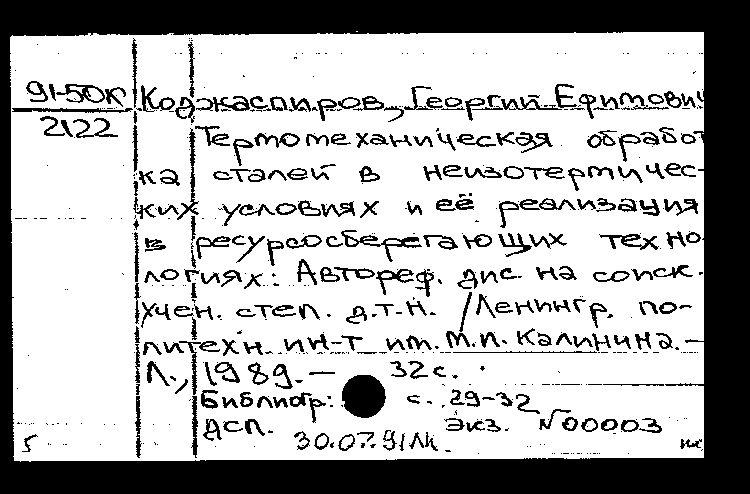 91-50К Коджаспиров, Георгий Ефимович
2122 Термомеханическая обработ
ка сталей в неизотермичес-
ких условиях и её реализация
в ресурсосберегающих техно
логиях: Автореф. дис на соиск.
учен. степ. д.т.н. /Ленингр. по-
литехн. ин-т им. М.И. Калинина.—
Л., 1989.— 32 с.
Библиогр: с. 29-32
ДСП. экз. №00003
5 30.07.91